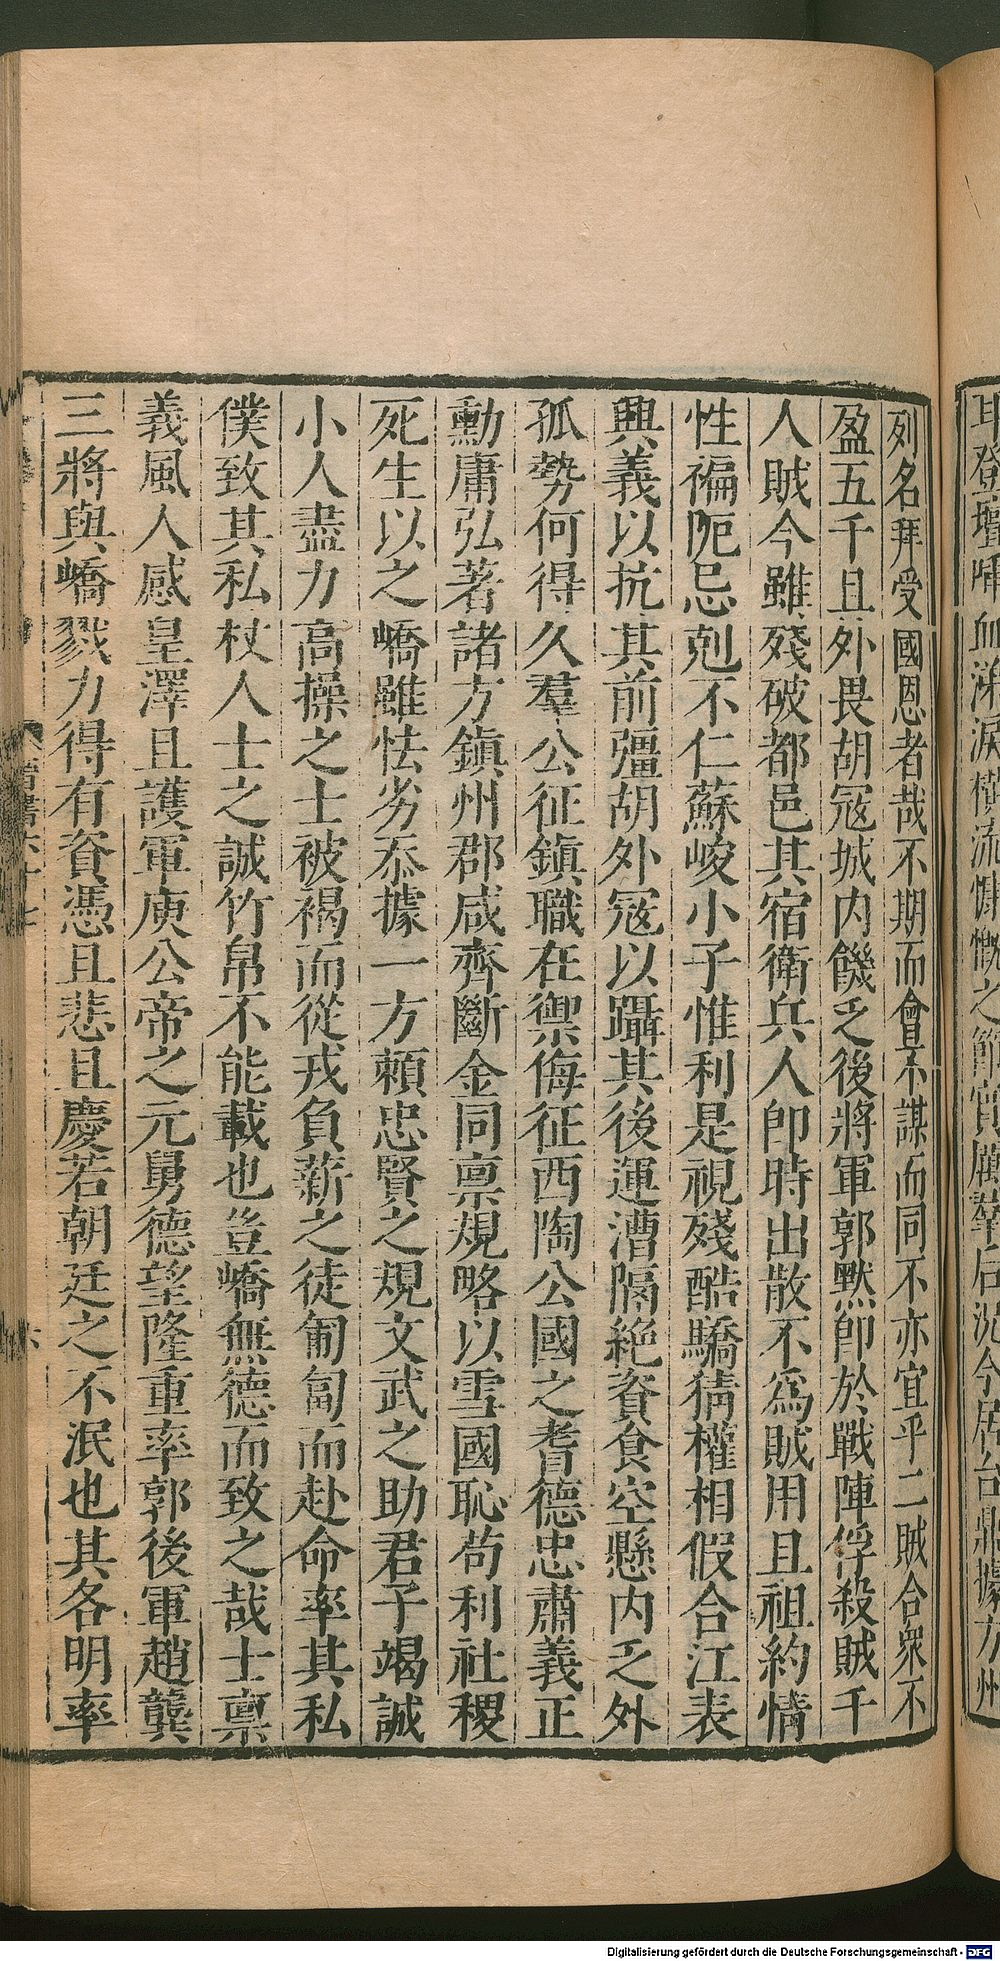 耳登壇歃血涕淚橫流慷慨之節實厲羣后況今居台鼎據方州
列名拜受國恩者哉不期而會不謀而同不亦宜乎二賊合衆不
盈五千且外畏胡寇城内饑乏後將軍郭默卽於戰陣俘殺賊千
人賊今雖殘破都邑其宿衛兵人卽時出散不爲賊用且祖約情
性褊阨忌剋不仁蘇峻小子惟利是視殘酷驕猜權相假合江表
興義以抗其前彊胡外寇以躡其後運漕隔絶資食空懸内乏外
孤勢何得久羣公征鎭職在禦侮征西陶公國之耆德忠肅義正
勳庸弘著諸方鎭州郡咸齊斷金同稟規略以雪國恥苟利社稷
死生以之嶠雖怯劣忝據一方賴忠賢之規文武之助君子竭誠
小人盡力高操之士被褐而從戎負薪之徒匍匐而赴命率其私
僕致其私杖人士之誠竹帛不能載也豈嶠無德而致之哉士稟
義風人感皇澤且護軍庾公帝之元舅德望隆重率郭後軍趙龔
三將與嶠戮力得有資憑且悲且慶若朝廷之不泯也其各明率
晉書六十七
六
Digitalisierung gefördert durch die Deutsche Forschungsgemeinschaft - DFG